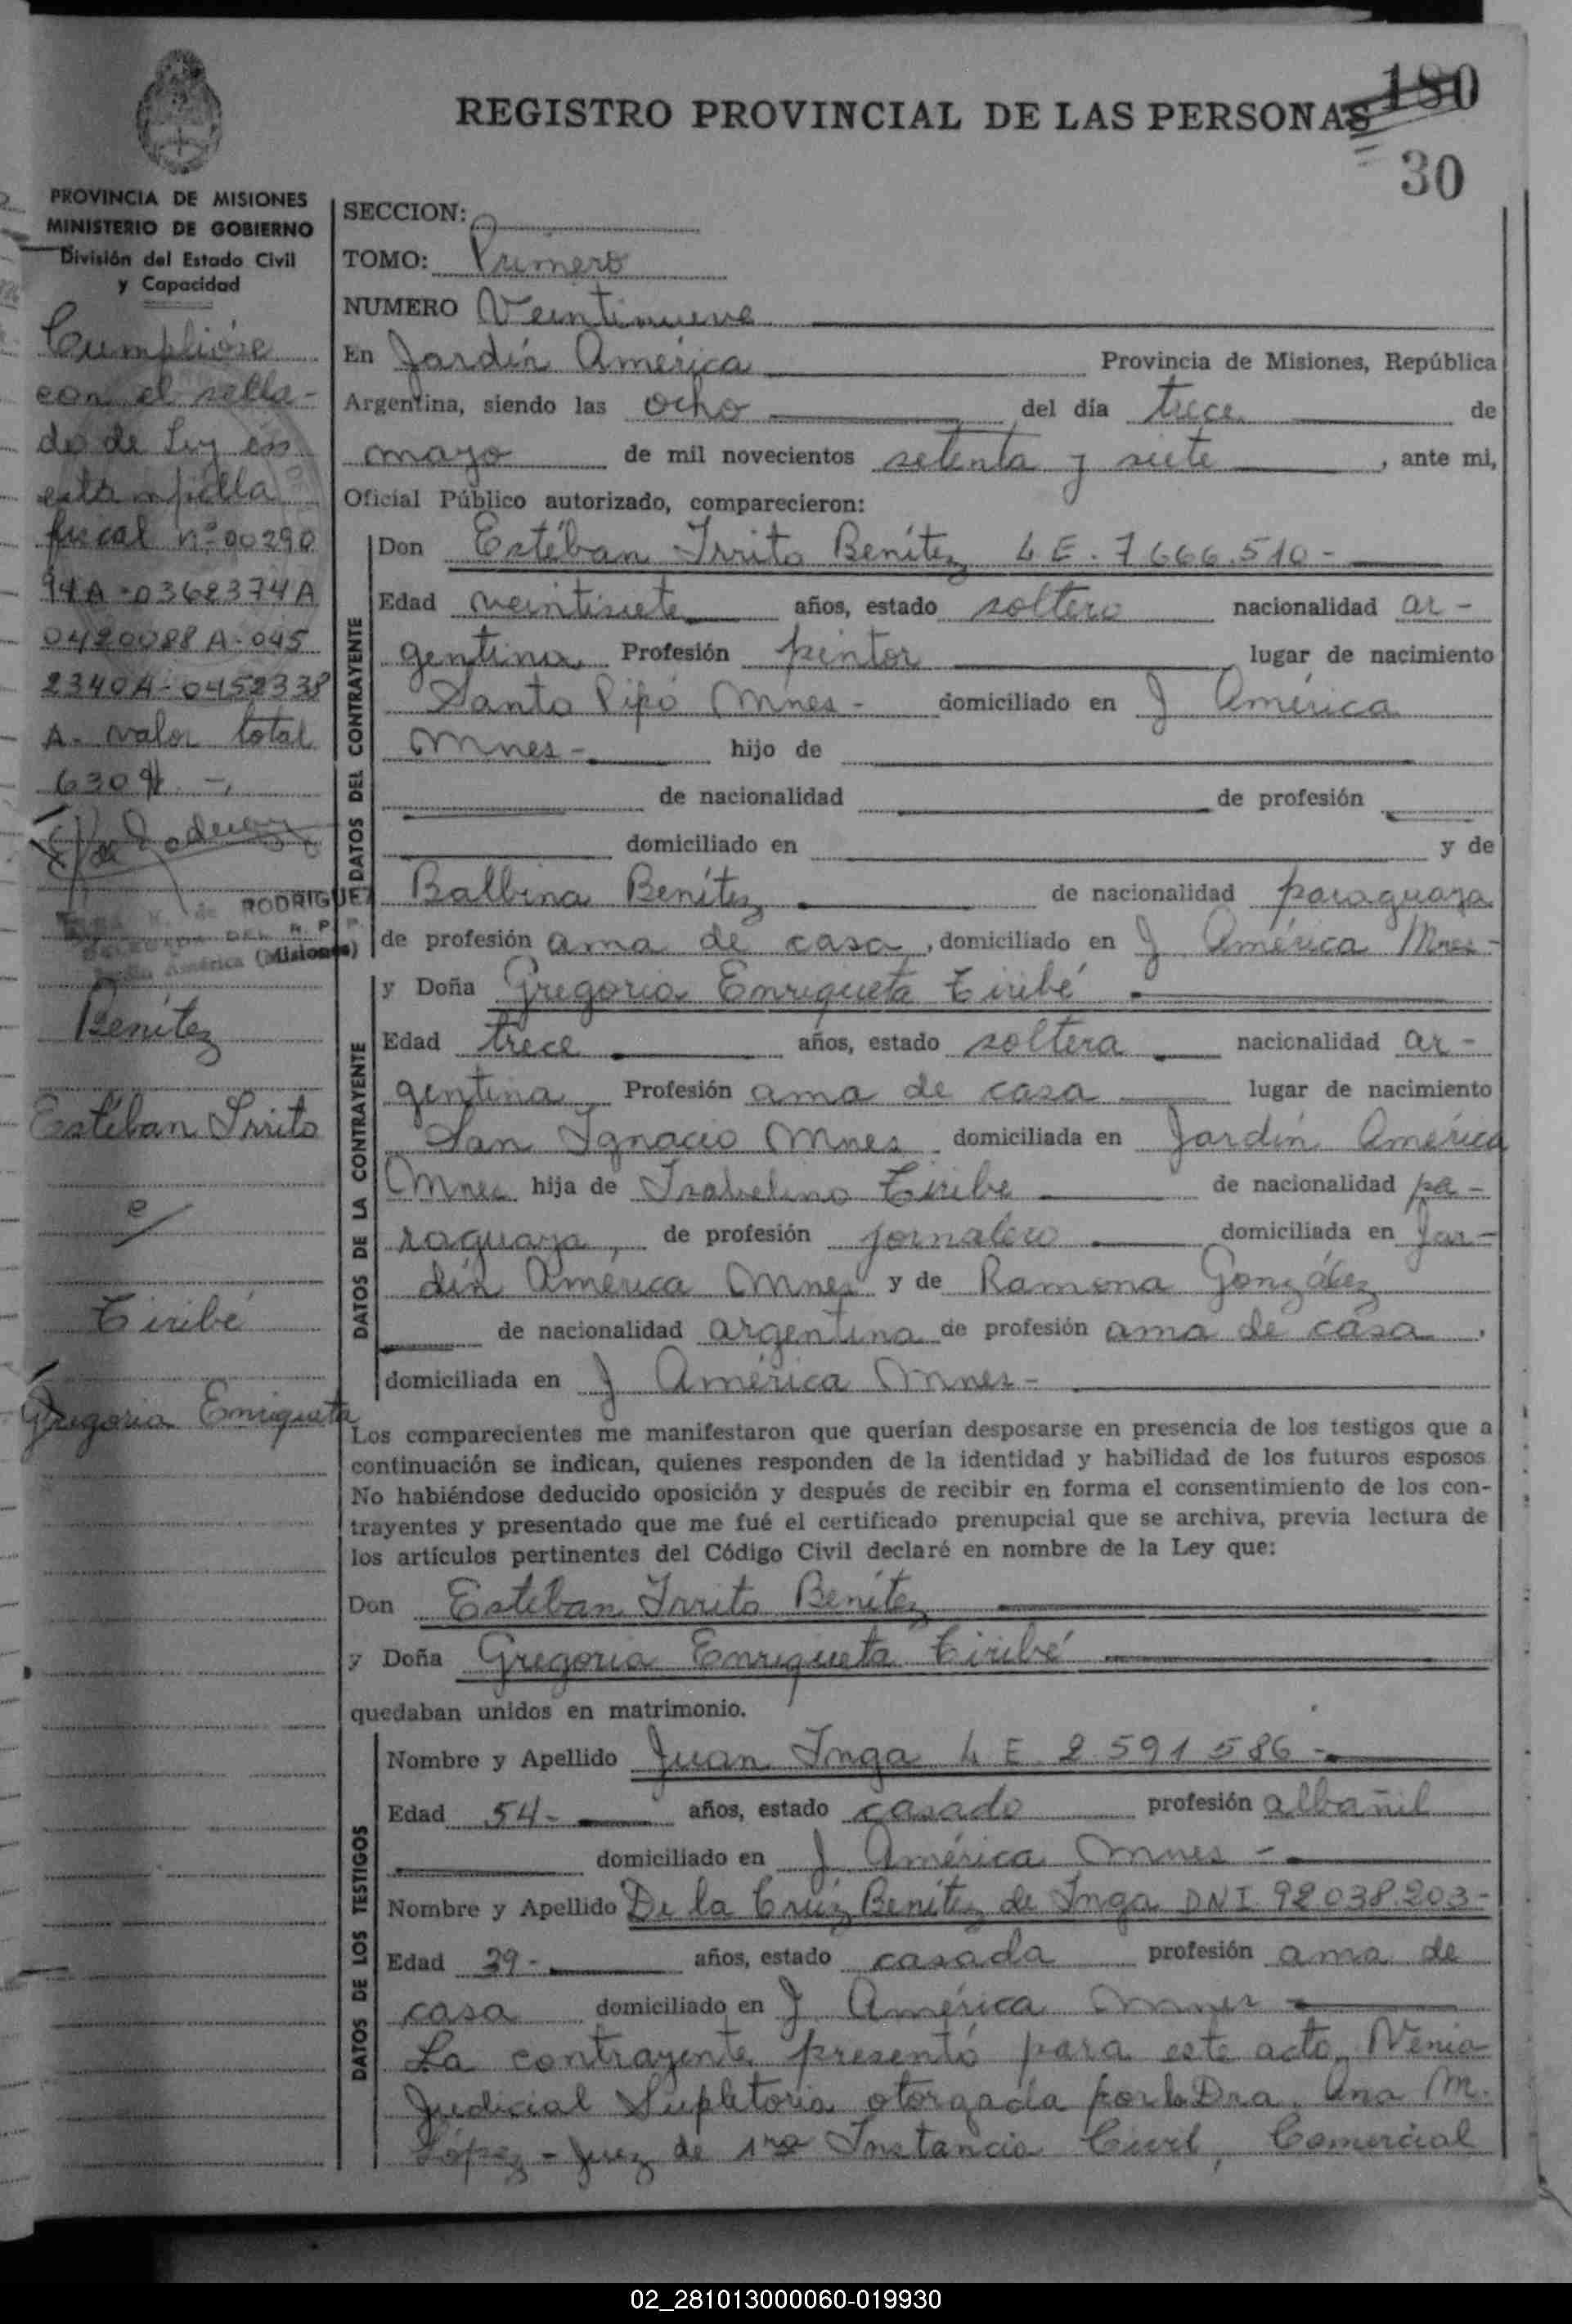 180
REGISTRO PROVINCIAL DE LAS PERSONAS
30
PROVINCIA DE MISIONES
MINISTERIO DE GOBIERNO
División del Estado Civil
y Capacidad
Cumplióse
con el sella-
do de Ley en
estampilla
fiscal nº 00290
94A-0368374A
0420088A-045
2340A-0452338
A- valor total
630 $ -
RODRIGUEZ
DEL R. P. P.
Jardín América (Misiones)
Benítez
Estéban Irrito
e/
Tiribé
Gregoria Enriqueta
SECCION:
TOMO: Primero
NUMERO Veintinueve
En Jardín América Provincia de Misiones, República
Argentina, siendo las ocho del día trece de
mayo de mil novecientos setenta y siete, ante mi,
Oficial Público autorizado, comparecieron:
DATOS DEL CONTRAYENTE
Don Estéban Irrito Benítez L E. 7.666.510-
Edad veintisiete años, estado soltero nacionalidad ar-
gentina Profesión pintor lugar de nacimiento
Santo Pipó Mnes- domiciliado en J América
Mnes- hijo de
de nacionalidad de profesión
domiciliado en y de
Balbina Benítez de nacionalidad paraguaya
de profesión ama de casa, domiciliado en J América Mnes-
DATOS DE LA CONTRAYENTE
y Doña Gregoria Enriqueta Tiribé
Edad trece años, estado soltera nacionalidad ar-
gentina Profesión ama de casa lugar de nacimiento
San Ignacio Mnes domiciliada en Jardín América
Mnes hija de Isabelino Tiribe de nacionalidad pa-
raguaya, de profesión jornalero domiciliada en Jar-
dín América Mnes y de Ramona González
de nacionalidad argentina de profesión ama de casa.
domiciliada en J América Mnes-
Los comparecientes me manifestaron que querían desposarse en presencia de los testigos que a
continuación se indican, quienes responden de la identidad y habilidad de los futuros esposos
No habiéndose deducido oposición y después de recibir en forma el consentimiento de los con-
trayentes y presentado que me fué el certificado prenupcial que se archiva, previa lectura de
los artículos pertinentes del Código Civil declaré en nombre de la Ley que:
Don Estéban Irrito Benítez
y Doña Gregoria Enriqueta Tiribé
quedaban unidos en matrimonio.
DATOS DE LOS TESTIGOS
Nombre y Apellido Juan Inga L E 2.591 586-
Edad 54- años, estado casado profesión albañil
domiciliado en J América Mnes-
Nombre y Apellido De la Cruz Benítez de Inga DNI 92.038.203-
Edad 39- años, estado casada profesión ama de
casa domiciliado en J América Mnes
La contrayente presentó para este acto, Venia
Judicial Supletoria otorgada por la Dra. Ana M.
López - Juez de 1ra Instancia Civil, Comercial
02_281013000060-019930